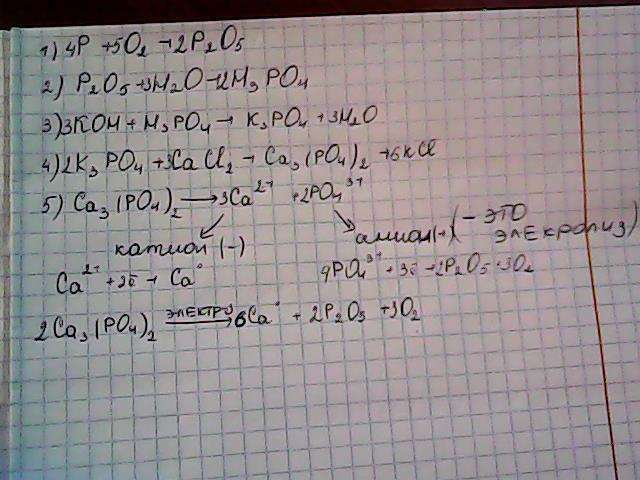 1) 4P + 5O₂ → 2P₂O₅
2) P₂O₅ + 3H₂O → 2H₃PO₄
3) 3KOH + H₃PO₄ → K₃PO₄ + 3H₂O
4) 2K₃PO₄ + 3CaCl₂ → Ca₃(PO₄)₂ + 6KCl
5) Ca₃(PO₄)₂ → 3Ca²⁺ + 2PO₄³⁺
катион (-) анион (+) (- ЭТО ЭЛЕКРОЛИЗ)
Ca²⁺ + 2ē → Ca° 4PO₄³⁺ + 3ē → 2P₂O₅ + 3O₂
2Ca₃(PO₄)₂ ЭЛЕКТРО → 6Ca° + 2P₂O₃ + 3O₂